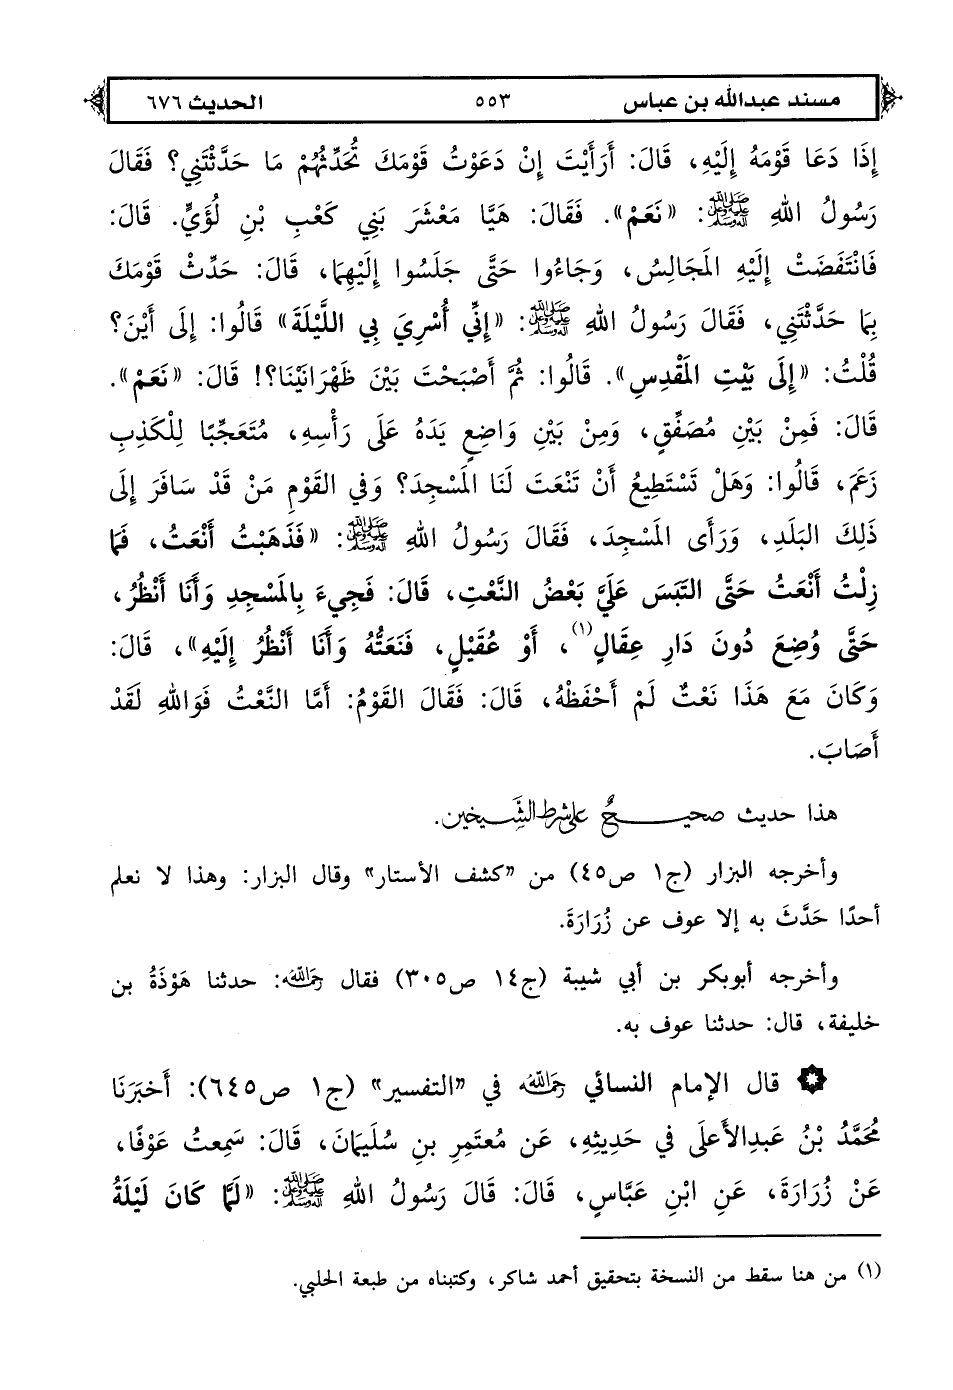 مسند عبدالله بن عباس ٥٥٣ الحديث ٦٧٦
إِذَا دَعَا قَوْمَهُ إِلَيْهِ، قَالَ: أَرَأَيْتَ إِنْ دَعَوْتُ قَوْمَكَ تُحَدِّثُهُمْ مَا حَدَّثْتَنِي؟ فَقَالَ
رَسُولُ اللهِ ﷺ: «نَعَمْ». فَقَالَ: هَيَّا مَعْشَرَ بَنِي كَعْبِ بْنِ لُؤَيٍّ. قَالَ:
فَانْتَفَضَتْ إِلَيْهِ المَجَالِسُ، وَجَاءُوا حَتَّى جَلَسُوا إِلَيْهِمَا، قَالَ: حَدِّثْ قَوْمَكَ
بِمَا حَدَّثْتَنِي، فَقَالَ رَسُولُ اللهِ ﷺ: «إِنِّي أُسْرِيَ بِي اللَّيْلَةَ» قَالُوا: إِلَى أَيْنَ؟
قُلْتُ: «إِلَى بَيْتِ المَقْدِسِ». قَالُوا: ثُمَّ أَصْبَحْتَ بَيْنَ ظَهْرَانَيْنَا؟! قَالَ: «نَعَمْ».
قَالَ: فَمِنْ بَيْنِ مُصَفِّقٍ، وَمِنْ بَيْنِ وَاضِعٍ يَدَهُ عَلَى رَأْسِهِ، مُتَعَجِّبًا لِلْكَذِبِ
زَعَمَ، قَالُوا: وَهَلْ تَسْتَطِيعُ أَنْ تَنْعَتَ لَنَا المَسْجِدَ؟ وَفِي القَوْمِ مَنْ قَدْ سَافَرَ إِلَى
ذَلِكَ البَلَدِ، وَرَأَى المَسْجِدَ، فَقَالَ رَسُولُ اللهِ ﷺ: «فَذَهَبْتُ أَنْعَتُ، فَمَا
زِلْتُ أَنْعَتُ حَتَّى التَبَسَ عَلَيَّ بَعْضُ النَّعْتِ، قَالَ: فَجِيءَ بِالمَسْجِدِ وَأَنَا أَنْظُرُ،
حَتَّى وُضِعَ دُونَ دَارِ عِقَالٍ(١)، أَوْ عُقَيْلٍ، فَنَعَتُّهُ وَأَنَا أَنْظُرُ إِلَيْهِ»، قَالَ:
وَكَانَ مَعَ هَذَا نَعْتٌ لَمْ أَحْفَظْهُ، قَالَ: فَقَالَ القَوْمُ: أَمَّا النَّعْتُ فَوَاللهِ لَقَدْ
أَصَابَ.
هذا حديث صحيحٌ على شرط الشَّيخين.
وأخرجه البزار (ج١ ص٤٥) من «كشف الأستار» وقال البزار: وهذا لا نعلم
أحدًا حَدَّثَ به إلا عوف عن زُرَارَةَ.
وأخرجه أبوبكر بن أبي شيبة (ج١٤ ص٣٠٥) فقال رَحِمَهُ اللهُ: حدثنا هَوْذَةُ بن
خليفة، قال: حدثنا عوف به.
قال الإمام النسائي رَحِمَهُ اللهُ في «التفسير» (ج١ ص٦٤٥): أَخبَرَنَا
مُحَمَّدُ بْنُ عَبدِالأَعلَى فِي حَدِيثِهِ، عَن مُعتَمِرِ بنِ سُلَيمَانَ، قَالَ: سَمِعتُ عَوْفًا،
عَنْ زُرَارَةَ، عَنِ ابْنِ عَبَّاسٍ، قَالَ: قَالَ رَسُولُ اللهِ ﷺ: «لَمَّا كَانَ لَيْلَةُ
(١) من هنا سقط من النسخة بتحقيق أحمد شاكر، وكتبناه من طبعة الحلبي.